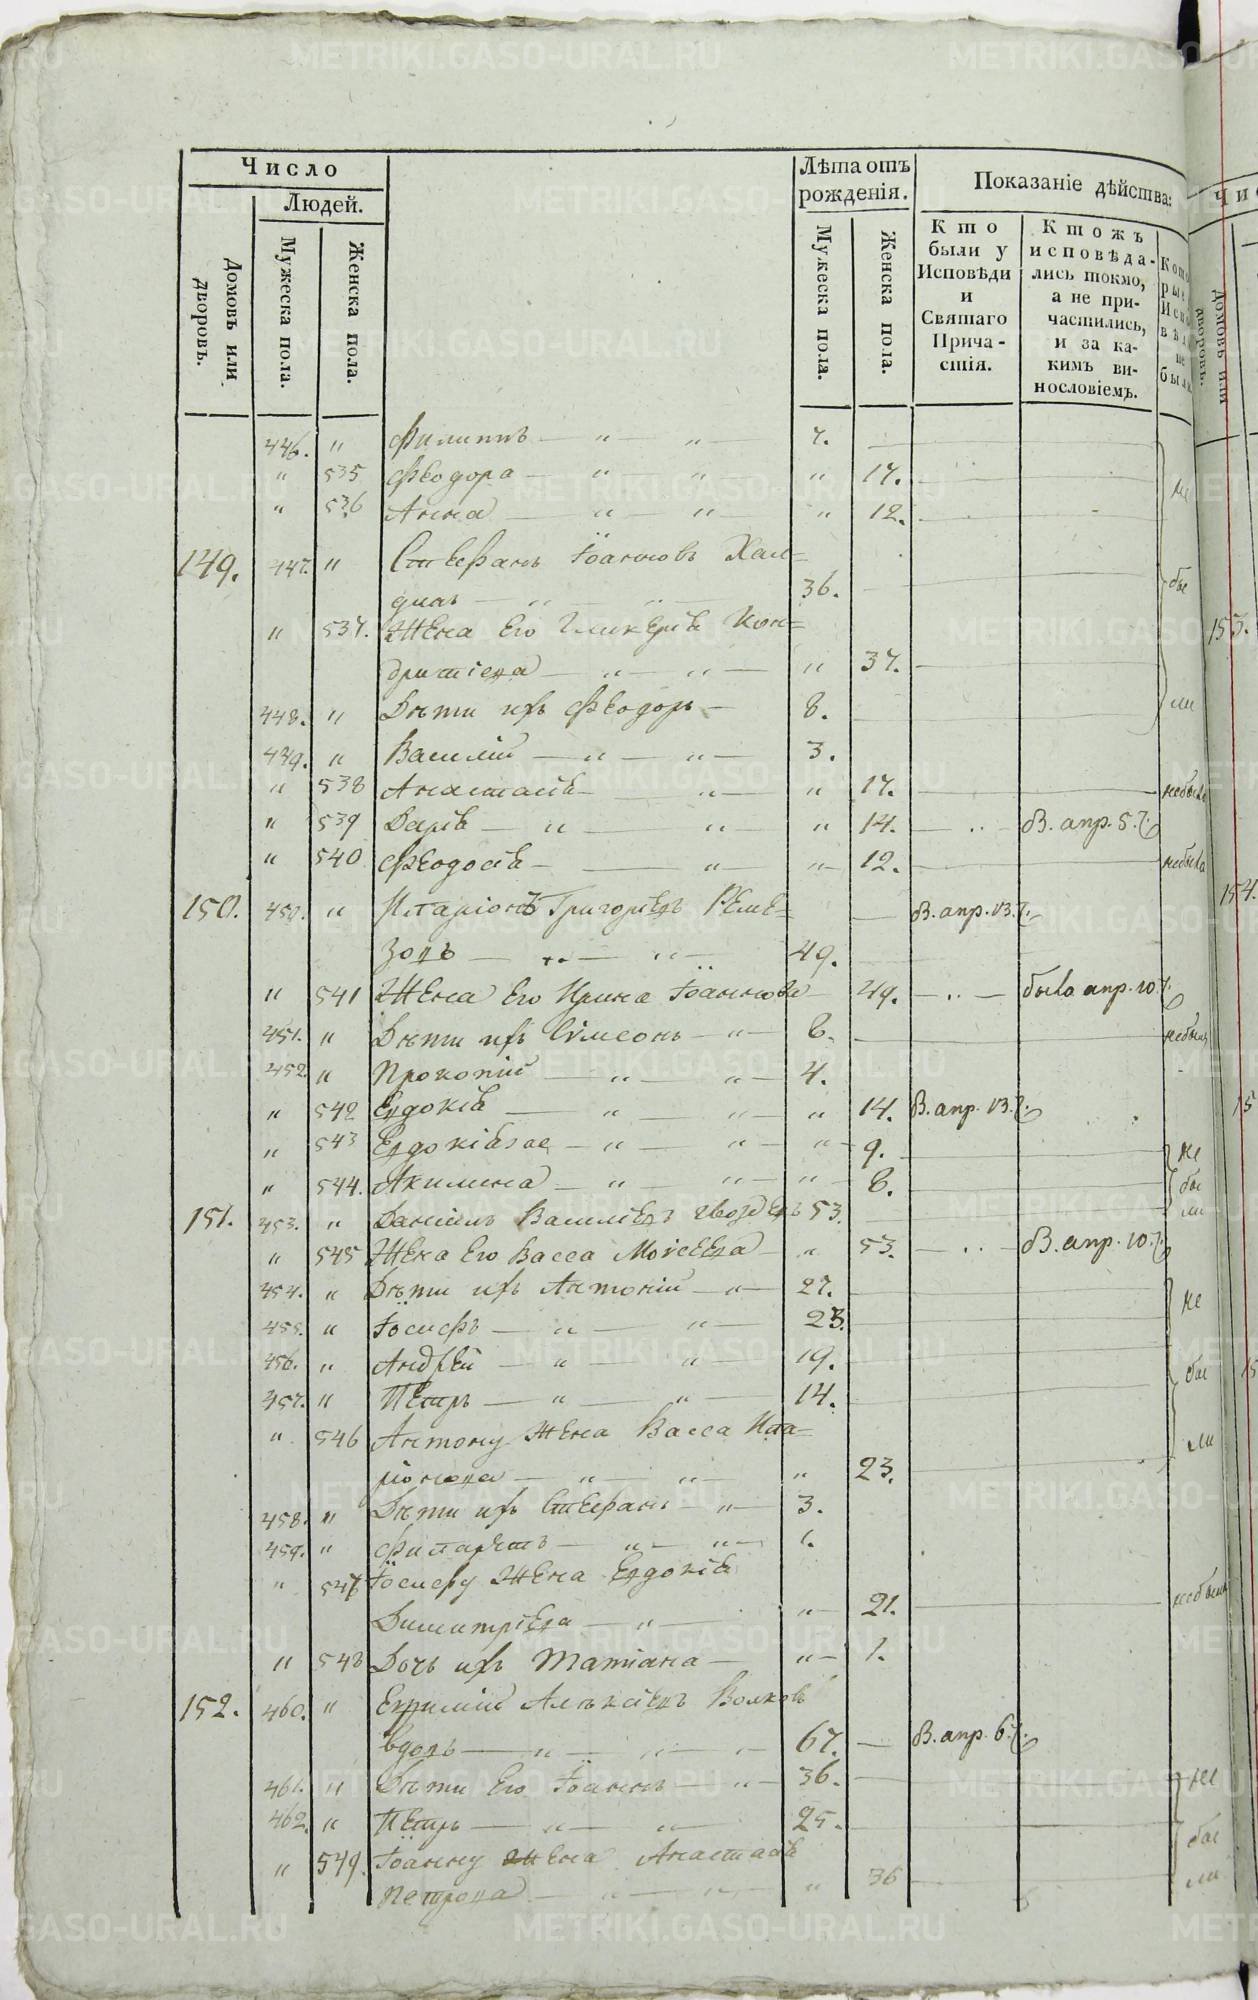 Число
Людей.
Домовъ или дворовъ.
Мужеска пола.
Женска пола.
Лѣта отъ рожденія.
Мужеска пола.
Женска пола.
Показаніе дѣйства:
Кто были у Исповѣди и Святаго Причастія.
Ктожъ исповѣдались токмо, а не причастились, и за какимъ винословіемъ.
446. " Филиппъ — " — " 7. —
" 535 Феодора — " — " " 17. —
" 536 Анна — " — " " 12. не
149. 447. " Стефанъ Іоанновъ Хал=
динъ — " — " — 36. — бы
" 537. Жена Его Гликерія Кон=
дратіева — " — " — " 37.
448. " Дѣти ихъ Феодоръ — 8. ли
449. " Василій — " — " — 3.
" 538 Анастасія — " — " 17. небыла
" 539 Дарія — " — " — " 14. — " — В. апр. 5.
" 540 Феодосія — " — " 12. небыла
150. 450. " Иларіонъ Григорьевъ Реме=
зовъ — " — " — 49. — В. апр. 13.
" 541 Жена Его Ирина Іоаннова 49. — " — была апр. 10
451. " Дѣти ихъ Сѵмеонъ — " — 6. небылъ
452. " Прокопій — " — " — 4.
" 542 Евдокія — " — " — " 14. В. апр. 13.
" 543 Евдокія — " — " — " 9. не
" 544. Акилина — " — " — " 6. бы
ли
151. 453. " Даніилъ Василіевъ Гвоздевъ 53.
" 545 Жена Его Васса Моисеева — " 53. — " — В. апр. 10.
454. " Дѣти ихъ Антоній — " — 27. не
455. " Іосифъ — " — " — 23.
456. " Андрей — " — " — 19. бы
457. " Петръ — " — " — 14.
" 546 Антону Жена Васса Ила=
ріонова — " — " — " 23. ли
458. " Дѣти ихъ Стефанъ — " — 3.
459. " Филаретъ — " — " — 1.
" 547 Іосифу Жена Евдокія
Димитріева — " — " 21. небыли
" 548 Дочь ихъ Татіана — " — 1.
152. 460. " Евфимій Алексіевъ Волковъ
вдовъ — " — " — 67. — В. апр. 6.
461. " Дѣти Его Іоаннъ — " — 36. не
462. " Петръ — " — " 25. бы
" 549. Іоанну Жена Анастасія
Петрова — " — " — " 36 ли
153.
154.
METRIKI.GASO-URAL.RU